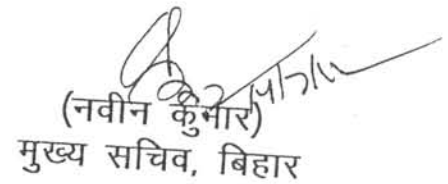 (नवीन कुमार)
मुख्य सचिव, बिहार